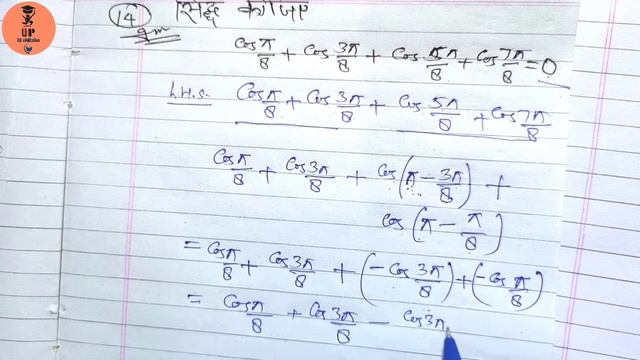 UP
14 सिद्ध कीजिए
cos π/8 + cos 3π/8 + cos 5π/8 + cos 7π/8 = 0
L.H.S. cos π/8 + cos 3π/8 + cos 5π/8 + cos 7π/8
cos π/8 + cos 3π/8 + cos (π − 3π/8) +
cos (π − π/8)
= cos π/8 + cos 3π/8 + (−cos 3π/8) + (−cos π/8)
= cos π/8 + cos 3π/8 − cos 3π